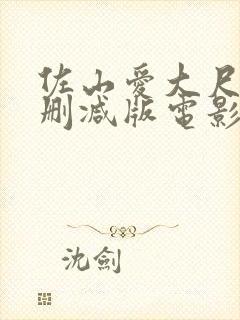 佐山愛大尺
删减版電影
沈劍